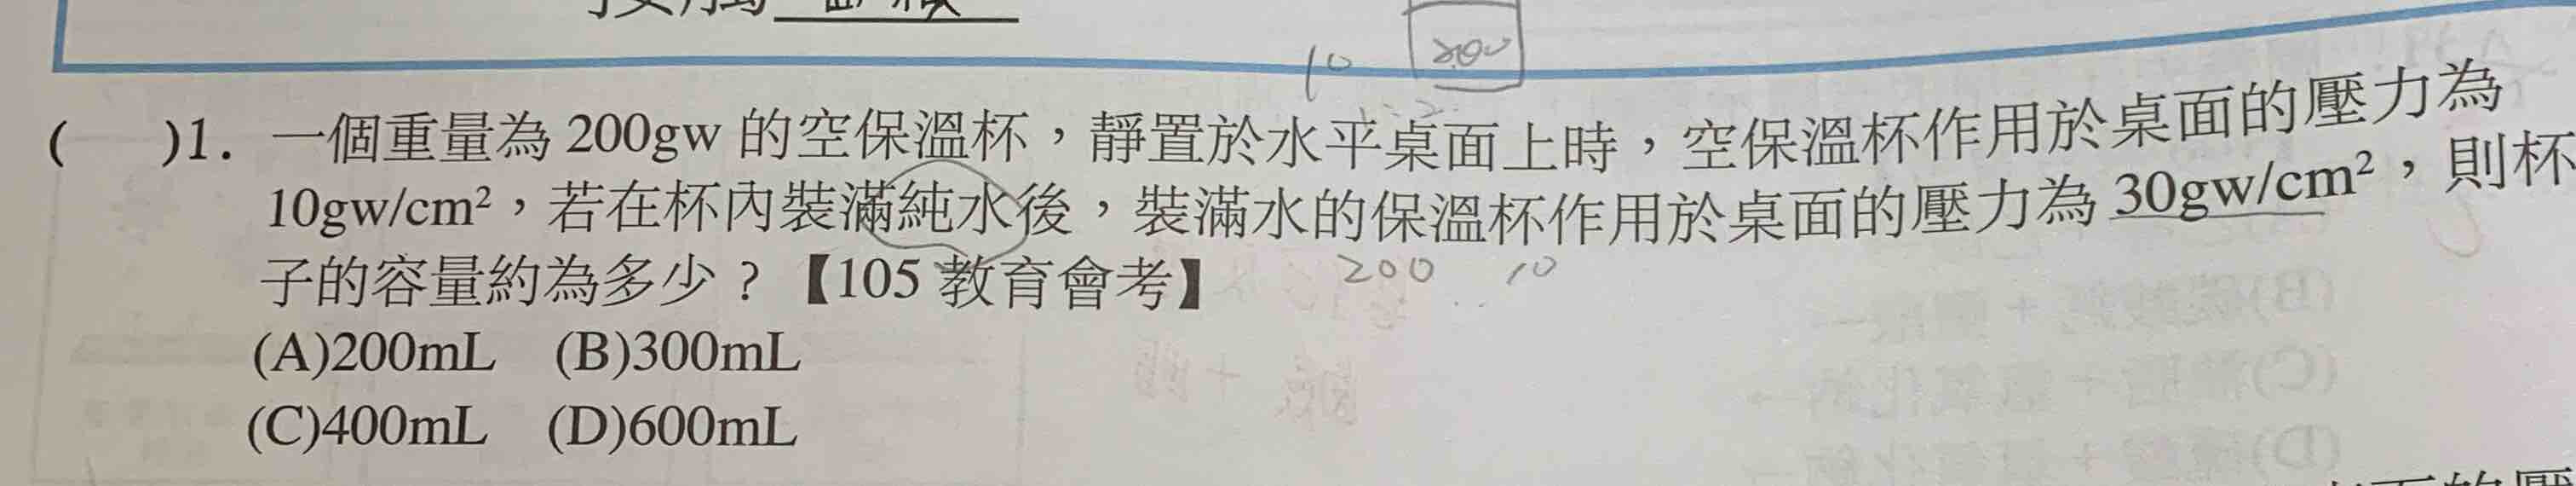 10 200
( )1. 一個重量為 200gw 的空保溫杯，靜置於水平桌面上時，空保溫杯作用於桌面的壓力為
10gw/cm²，若在杯內裝滿純水後，裝滿水的保溫杯作用於桌面的壓力為 30gw/cm²，則杯
子的容量約為多少？【105 教育會考】 200 10
(A)200mL (B)300mL
(C)400mL (D)600mL